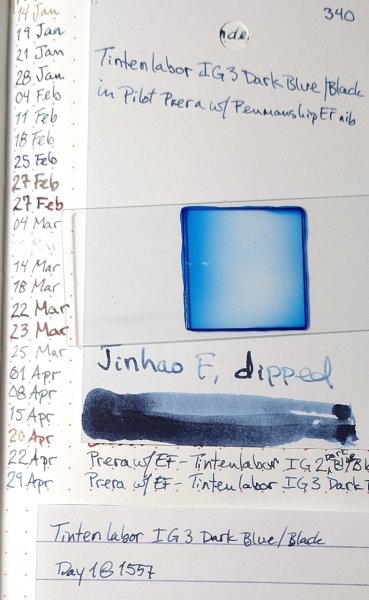 340
14 Jan
19 Jan
21 Jan
28 Jan
04 Feb
11 Feb
18 Feb
25 Feb
27 Feb
27 Feb
04 Mar
14 Mar
18 Mar
22 Mar
23 Mar
25 Mar
01 Apr
08 Apr
15 Apr
20 Apr
22 Apr
29 Apr
nde
Tintenlabor IG3 Dark Blue/Black
in Pilot Prera w/ Penmanship EF nib
Jinhao F, dipped
Prera w/ EF - Tintenlabor IG2 Dark Bl/B
Prera w/ EF - Tintenlabor IG3 Dark
Tintenlabor IG3 Dark Blue/Black
Day 1 @ 1557